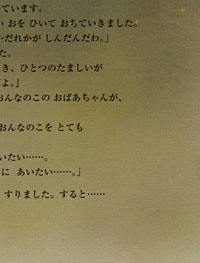 ています。
い おを ひいて おちていきました。
だれかが しんだんだわ。」
た。
き、ひとつのたましいが
だよ。」
おんなのこの おばあちゃんが、
おんなのこを とても
いたい……。
に あいたい……。」
すりました。すると……